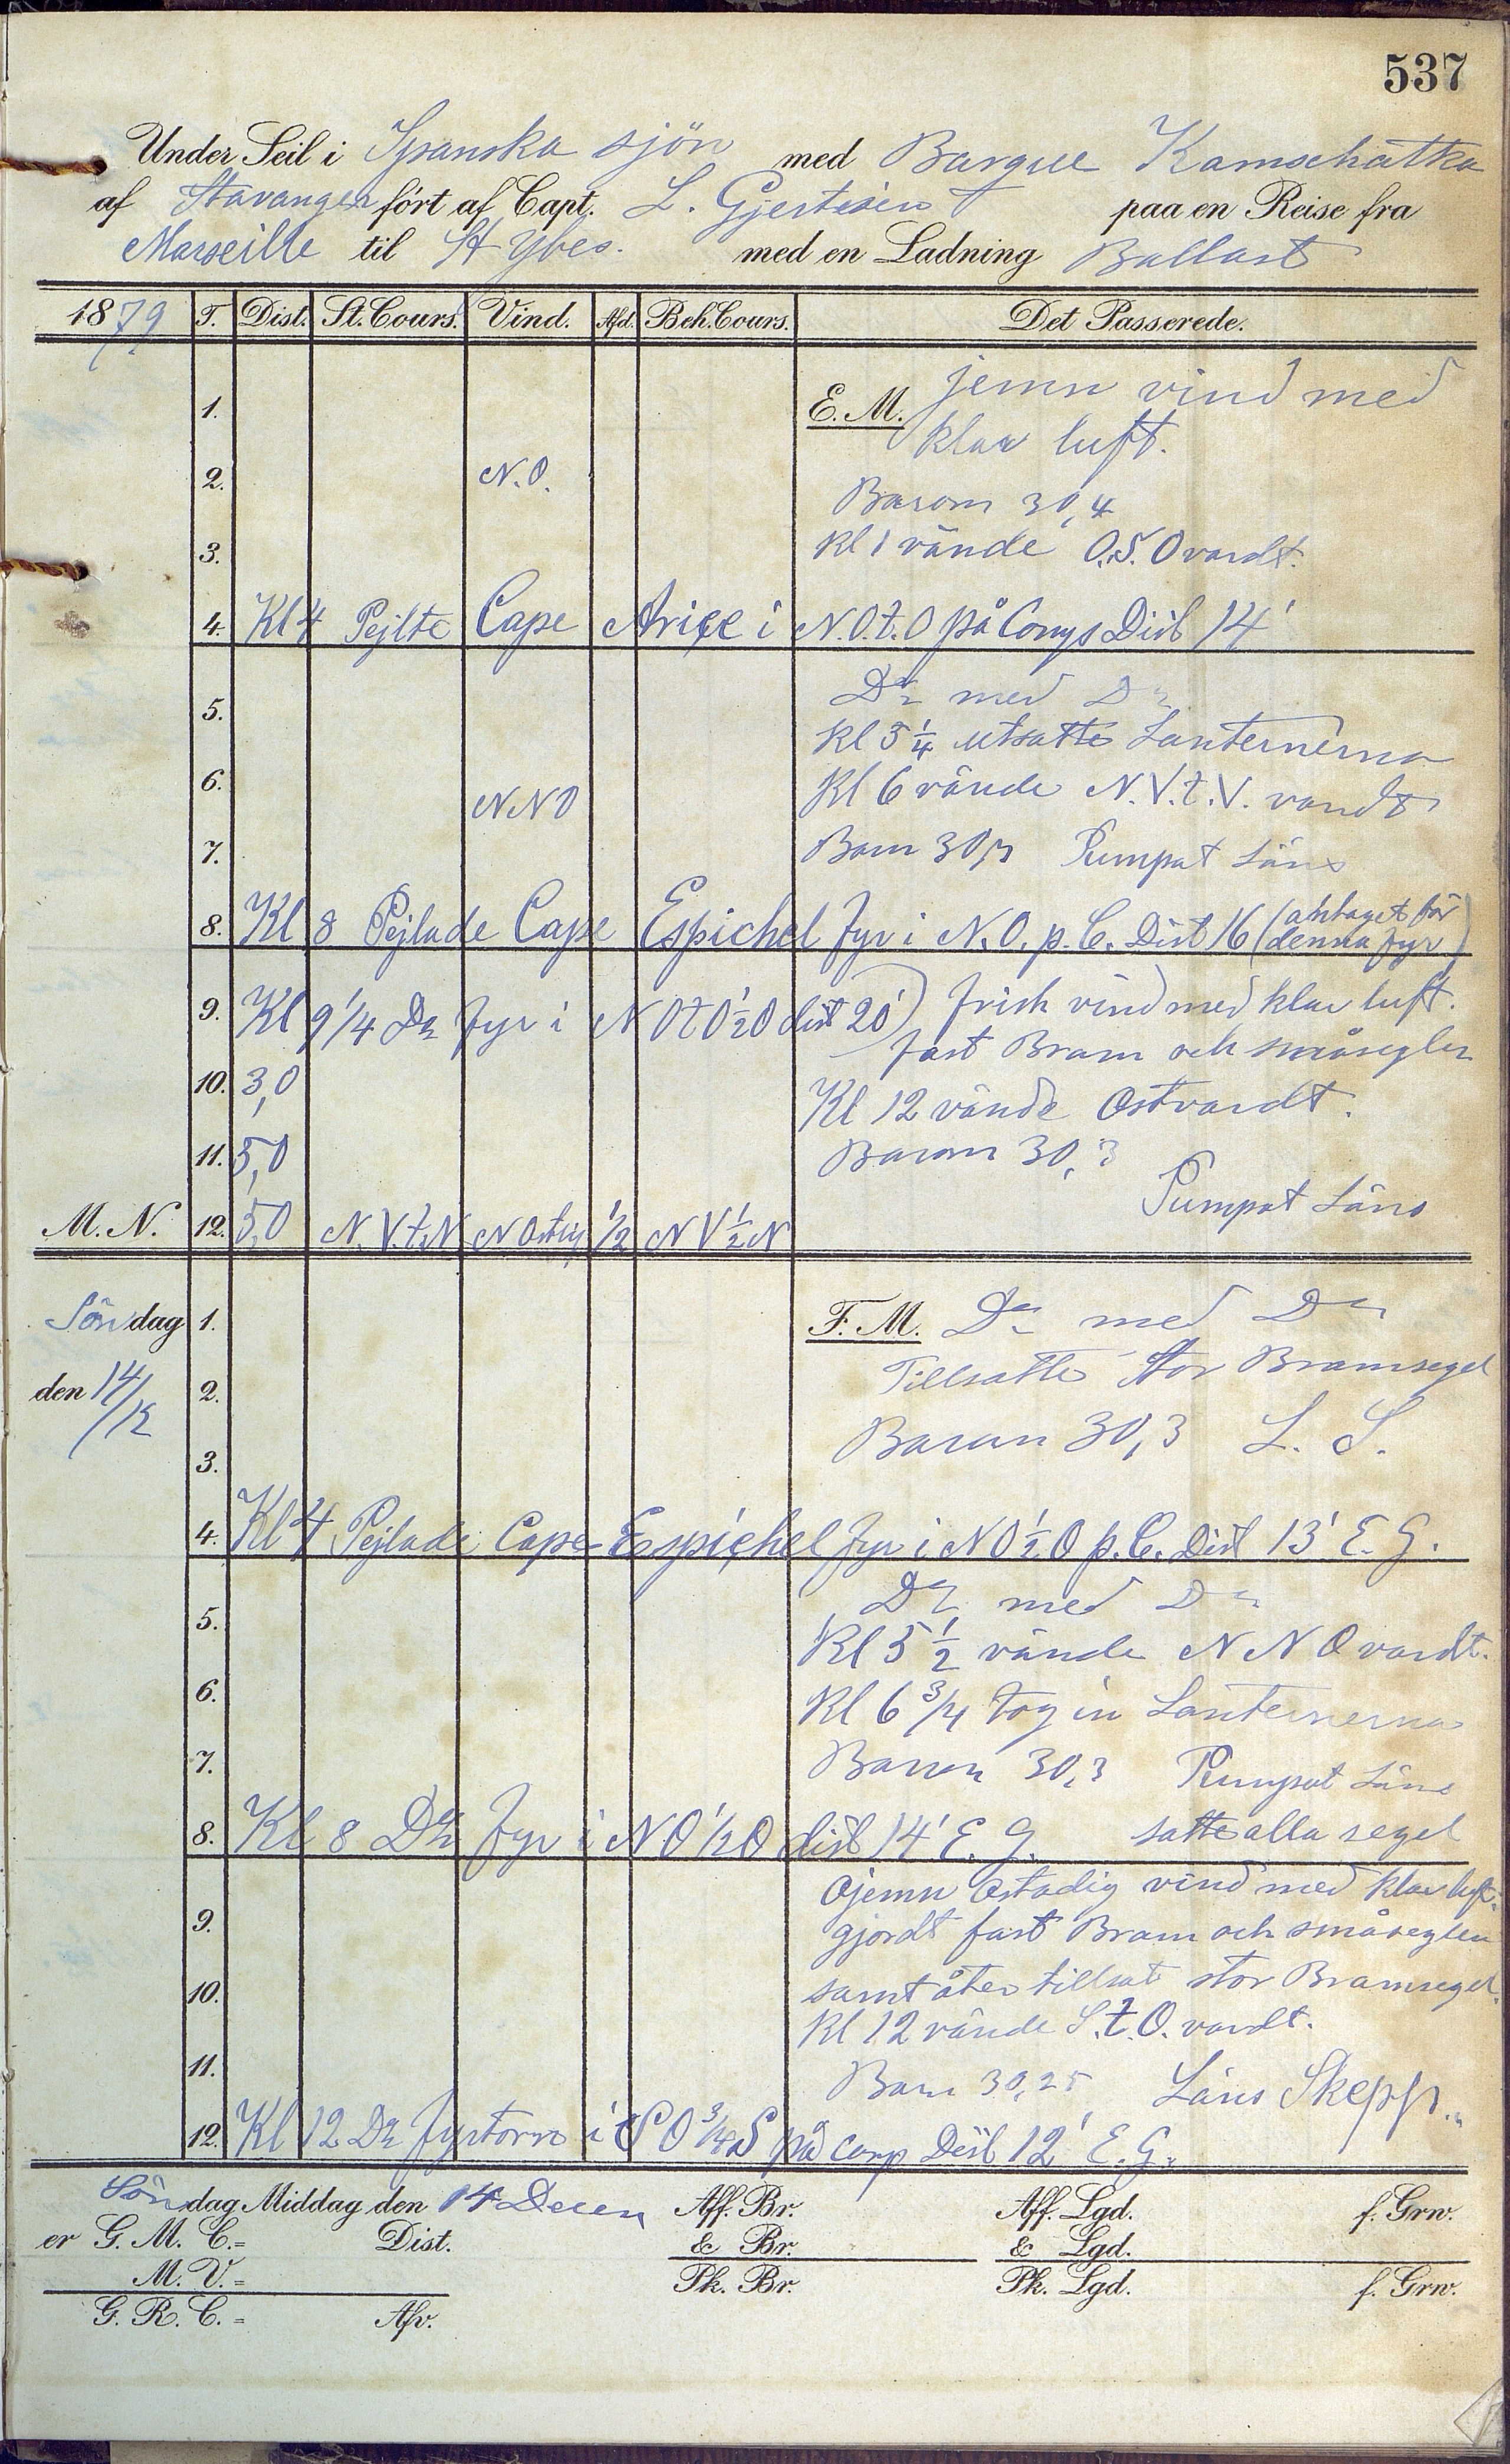 537
Under Seil i Spanska sjön med Barque Kamschatka
af Stavanger fört af Capt. L. Gjertsen paa en Reise fra
Marseille til St Ybes. med en Ladning Ballast
1879 T. Dist. St. Cours. Vind. Afd. Beh. Cours. Det Passerede.
1. E. M. jemn vind med
klar luft.
2. N.O.
Barom 30,4
3. Kl 1 vände O.S.O vardt.
4. Kl 4 Pejlte Cape i N.O.t.O på Comps Dist 14'
5. Do med Do
Kl 5 1/4 utsatte Lanternerna
6. NNO Kl 6 vände N.V.t.V. vardt
7. Bam 30, Pumpat Läns
8. Kl 8 Pejlade Cape Espichel Fyr i N.O. p. C. Dist 16 (aftaget för
denna fyr)
9. Kl 9 1/4 Do Fyr i NOtO 1/2 O dist 20') frisk vind med klar luft.
fast Bram och småseglen
10. 3,0 Kl 12 vände Ostvardt.
11. 5,0 Barom 30,3
Pumpat Läns
M. N. 12. 5,0 N.V.t.N N Ostlig 1/2 NV 1/2 N
Söndag 1. F. M. Do med Do
Tillsatte Stor Bramsegel
den 14/12 2.
Barom 30,3 L. S.
3.
4. Kl 4 Pejlade Cape Espichel Fyr i NO 1/2 O p. C. Dist 13' E. G.
5. Do med Do
Kl 5 1/2 vände NNO vardt.
6. Kl 6 3/4 tog in Lanternerna
7. Barom 30,3 Pumpat Läns
8. Kl 8 Do Fyr i NO 1/2 O dist 14' E. G. satte alla segel
Ojemn Ostadig vind med klar luft.
9. gjordt fast Bram och småseglen
10. samt åter tillsat stor Bramsegel.
Kl 12 vände S.t.O. vardt.
11. Bam 30,25 Läns Skepp.
12. Kl 12 Do Fyrtorn i SO 3/4 S på Comp Dist 12' E. G.
Söndag Middag den 14 Decem Aff. Br. Aff. Lgd. f. Grw.
er G. M. C.= Dist. & Br. & Lgd.
M. V.= Pk. Br. Pk. Lgd. f. Grw.
G. R. C.= Afv.